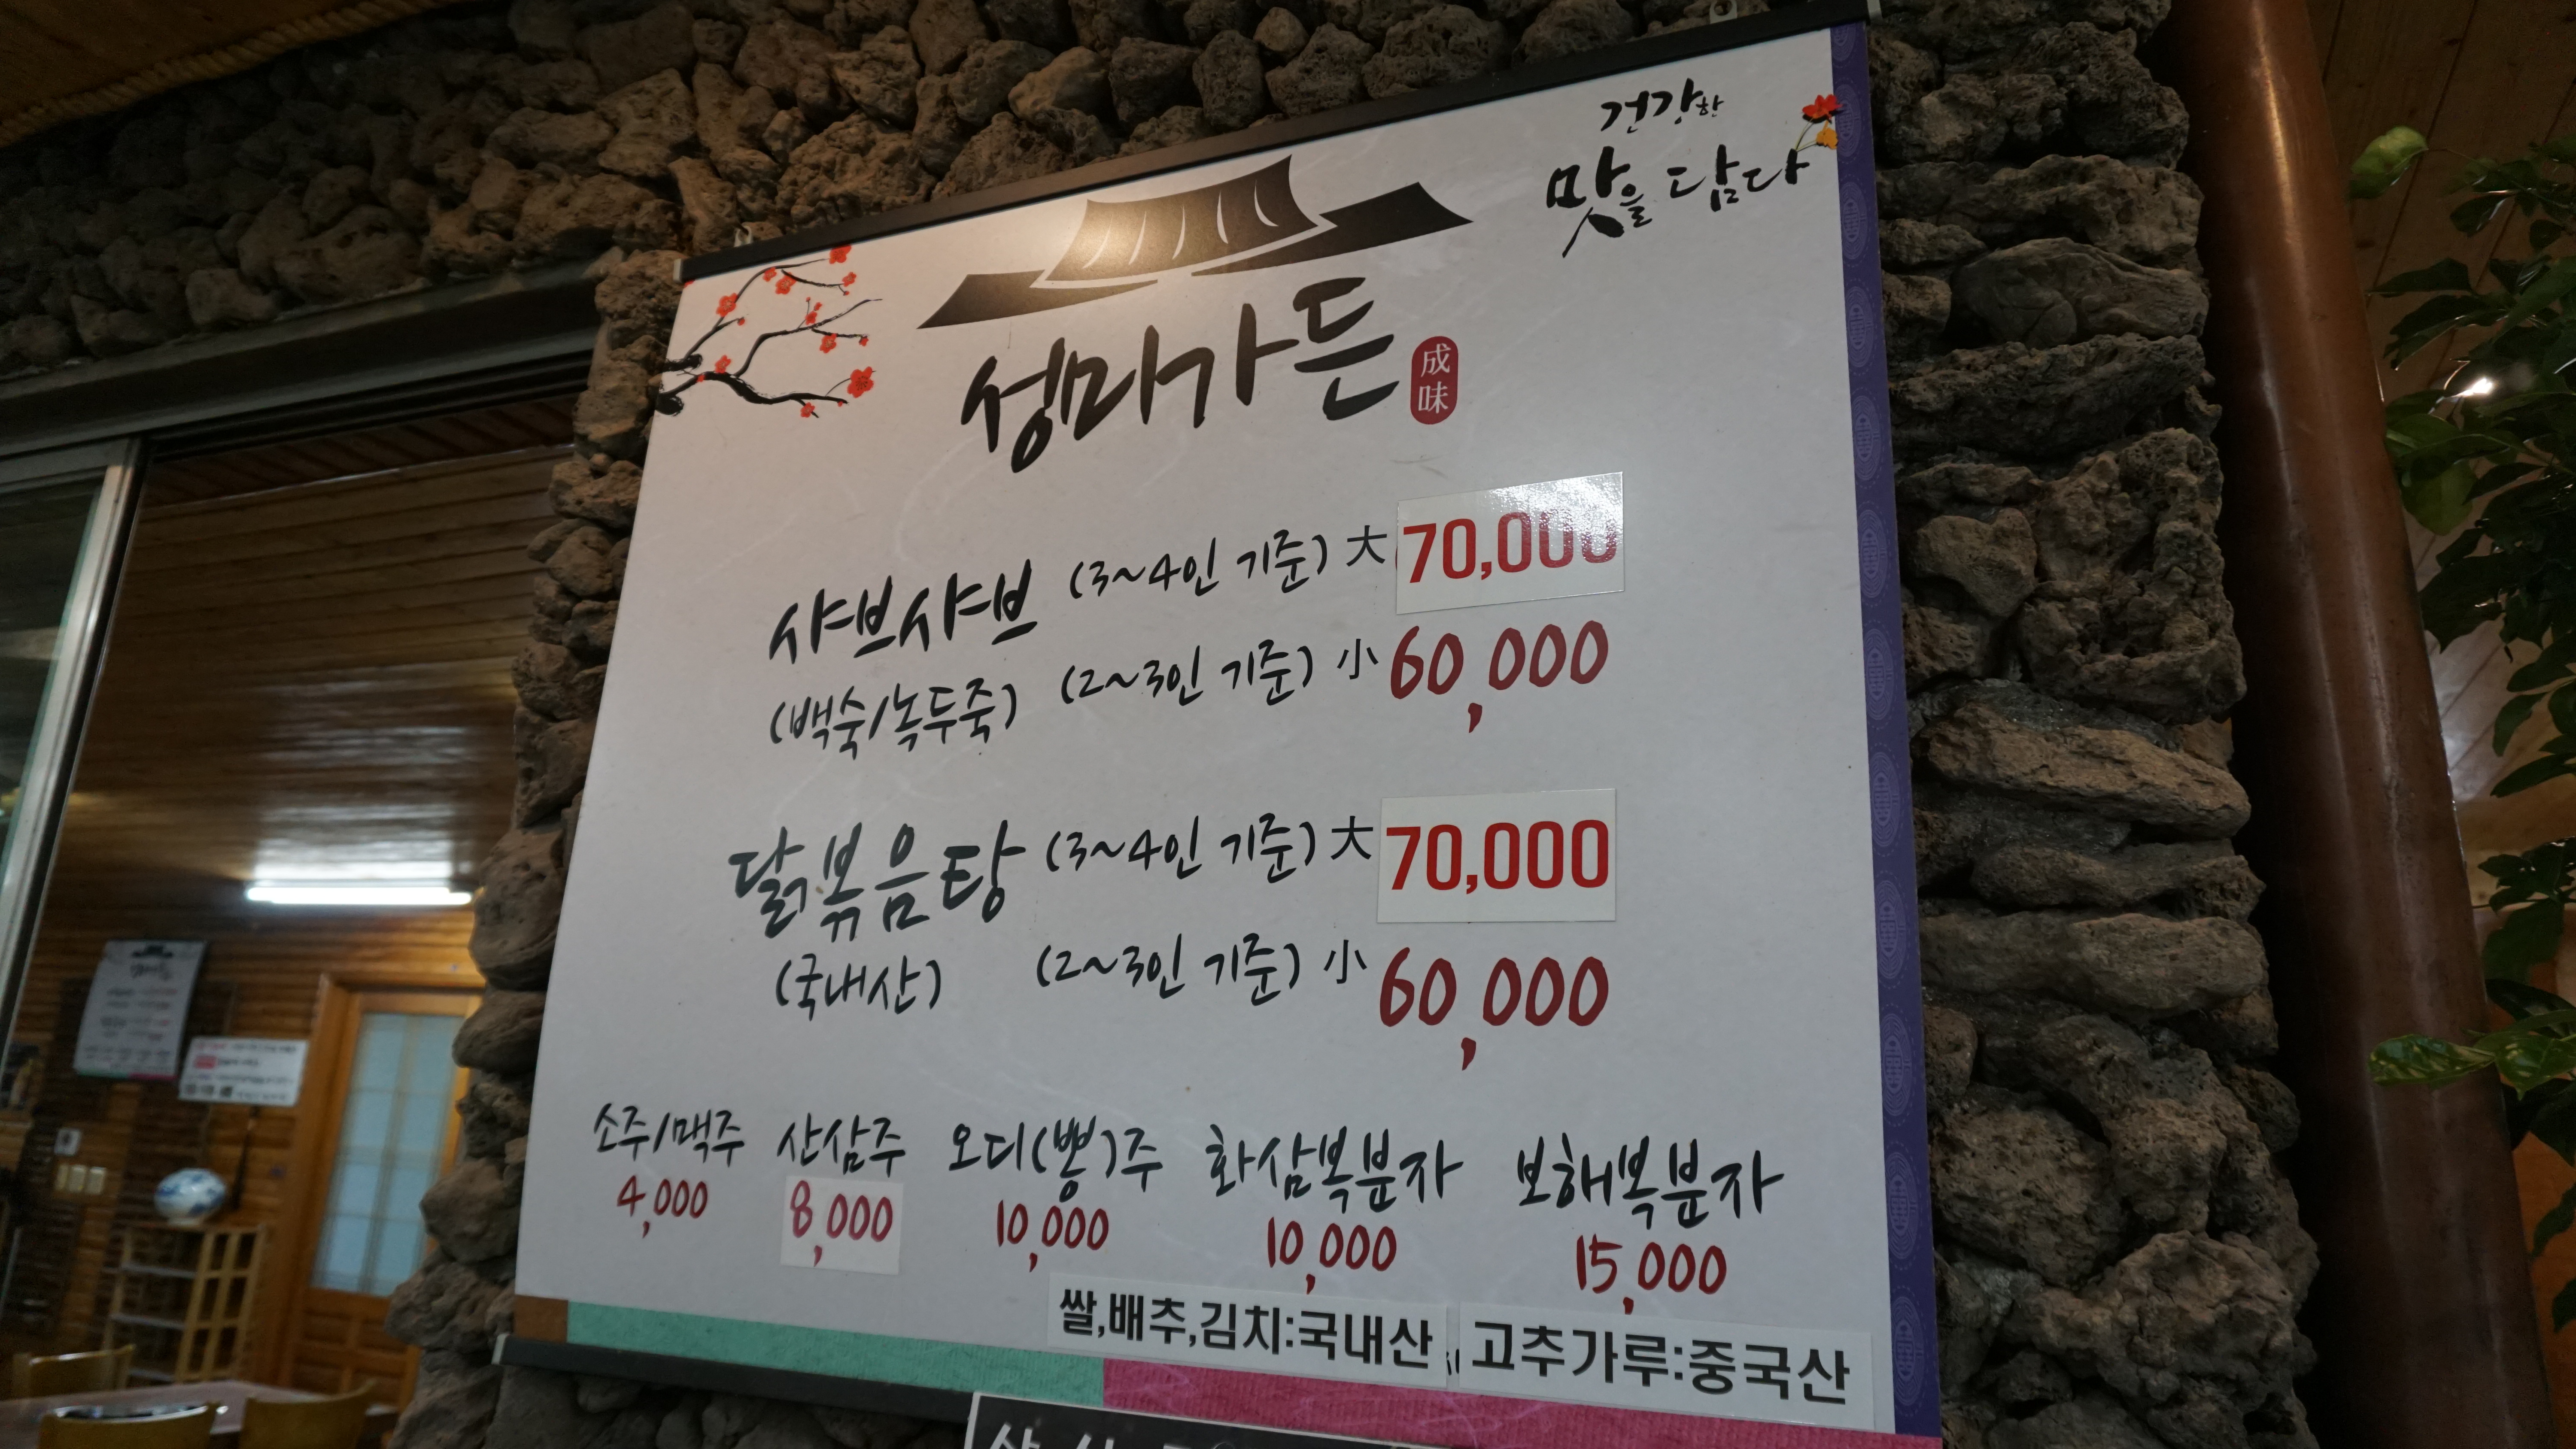 건강한
맛을 담다
성미가든
成味
샤브샤브 (3~4인 기준) 大 70,000
(백숙/녹두죽) (2~3인 기준) 小 60,000
닭볶음탕 (3~4인 기준) 大 70,000
(국내산) (2~3인 기준) 小 60,000
소주/맥주 산삼주 오디(뽕)주 화삼복분자 보해복분자
4,000 8,000 10,000 10,000 15,000
쌀,배추,김치:국내산 고추가루:중국산